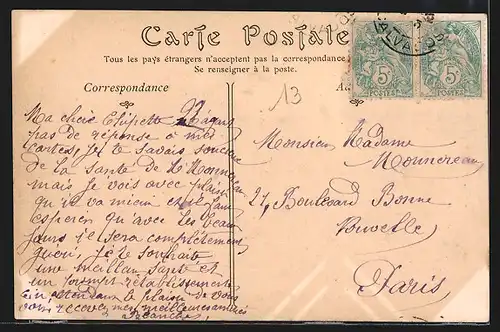 Carte Postale
Tous les pays étrangers n'acceptent pas la correspondance
Se renseigner à la poste.
Correspondance
13
5c 5c
POSTES POSTES
CALVADOS
Ma chère
pas de réponse à mes
cartes, je te savais
de la santé de
mais je vois avec plaisir
qu'il va mieux et il faut
espérer qu'avec les beaux
jours il sera complètement
guéri, je te souhaite
une meilleure santé et
un prompt rétablissement
En attendant le plaisir de vous
voir recevez mes meilleures amitiés
Monsieur Madame
27, Boulevard Bonne
Nouvelle
Paris